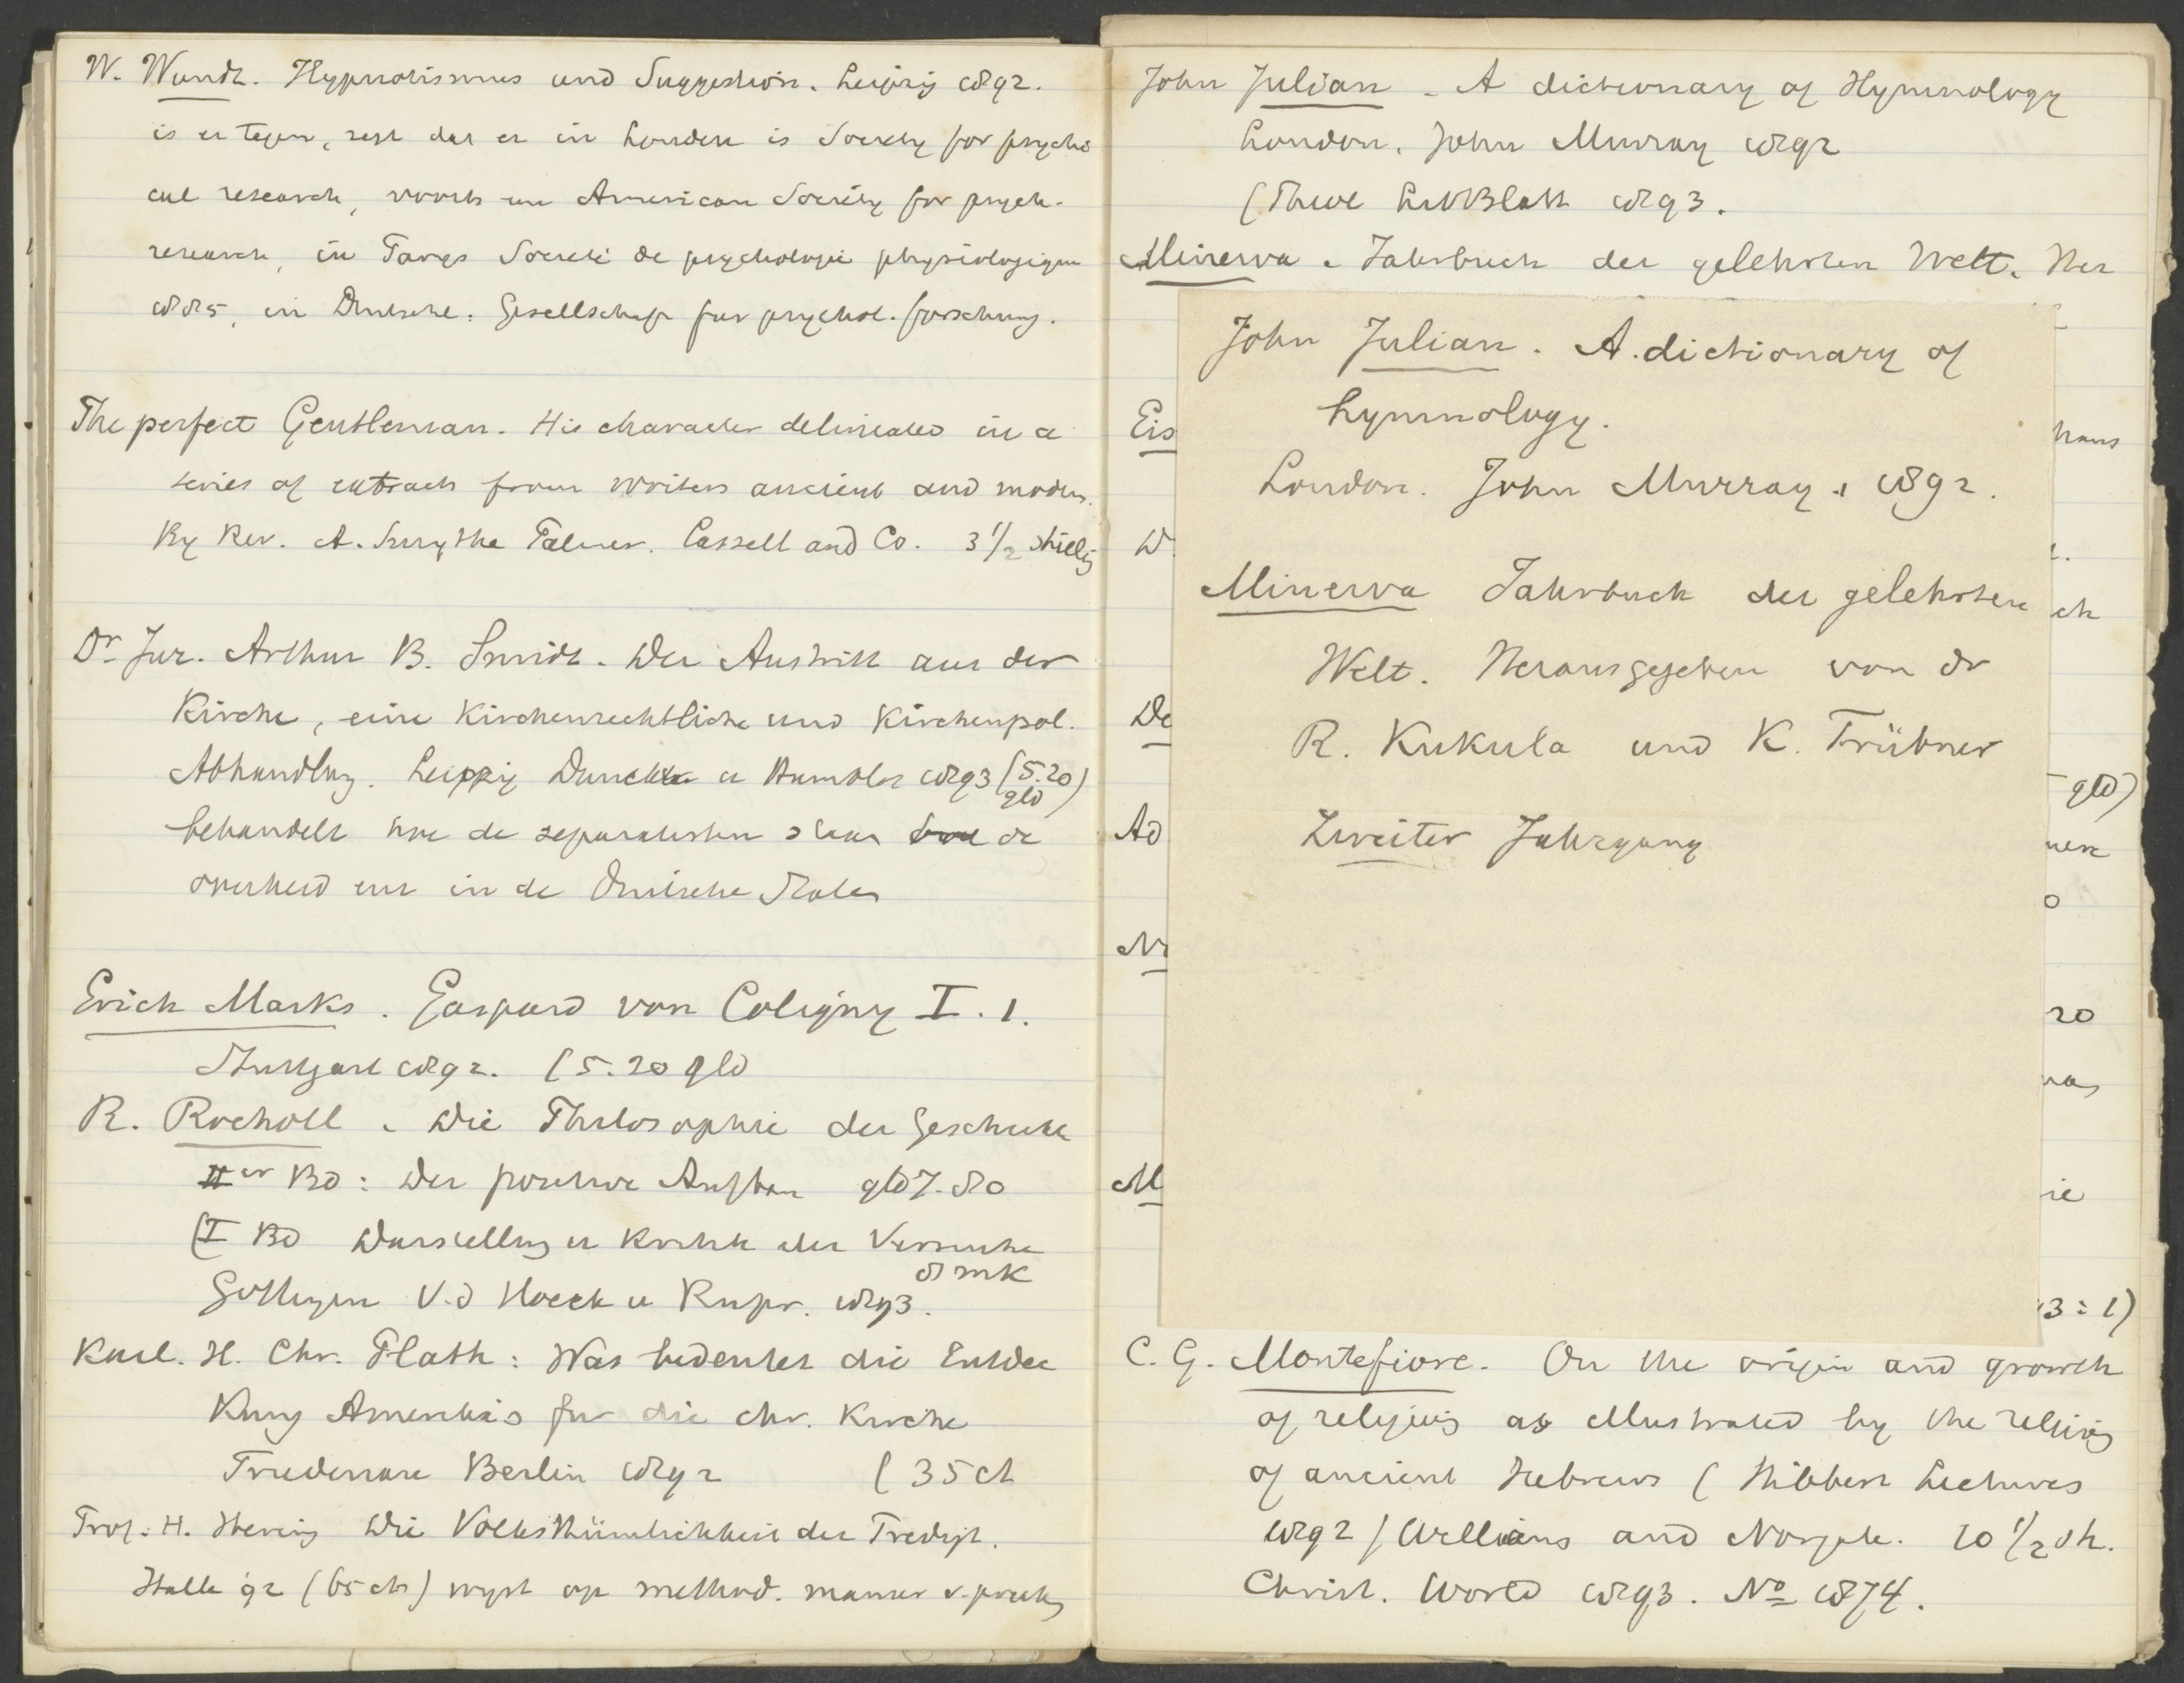 W. Wundt. Hypnotismus und Suggestion. Leipzig 1892.
is er tegen, zegt dat er in Londen is Society for psychi
cal research, voorts een American Society for psych.
research, in Parys Société de psychologie physiologique
1885, in Duitschl: Gesellschaft fur psychol. forschung.
The perfect Gentleman. His character delineated in a
series of extracts from writers ancient and modern.
By Rev. A. Smythe Palmer. Cassell and Co. 3 1/2 shilling
Dr Jur. Arthur B. Smidt. Der Austritt aus der
Kirche, eine Kirchenrechtliche und Kirchenpol.
Abhandlung. Leipzig Duncker u Humblot 1893 (5.20
gld)
behandelt hoe de separatisten staan de
overheid enz in de Duitsche Staten
Erich Marks. Gaspard von Coligny I. 1.
Stuttgart 1892. (5.20 gld
R. Rocholl. Die Philosophie der Geschichte
IIer Bd: Der positive Aufbau gld 7.80
(I Bd Darstellung u Kritik der Versuche
8 mk
Gottingen V.d Hoeck u Rupr. 1893.
Karl. H. Chr. Plath: Was bedeutet die Entdec
kung Amerika's fur die chr. Kirche
Friedenau Berlin 1892 (35 ct
Prof. H. Hering Die Volksthümlichkeit der Predigt.
Halle 92 (65 cts) wyst op method. manier v. preeken
John Julian. A dictionary of Hymnology
London. John Murray 1892
(Theol LitBlatt 1893.
Minerva. Jahrbuch der gelehrten Welt. Her
John Julian. A. dictionary of
hymnology.
London. John Murray. 1892.
Minerva Jahrbuch der gelehrten
Welt. Herausgegeben von dr
R. Kukula und K. Trübner
Zweiter Jahrgang
Eis
haus
W
ch
De
gld)
Ad
M
20
ie
3 : 1)
C. G. Montefiore. On the origin and growth
of religion as illustrated by the religion
of ancient Hebrews (Hibbert Lectures
1892) Williams and Norgate. 10 1/2 sh.
Christ. World 1893. No 1874.